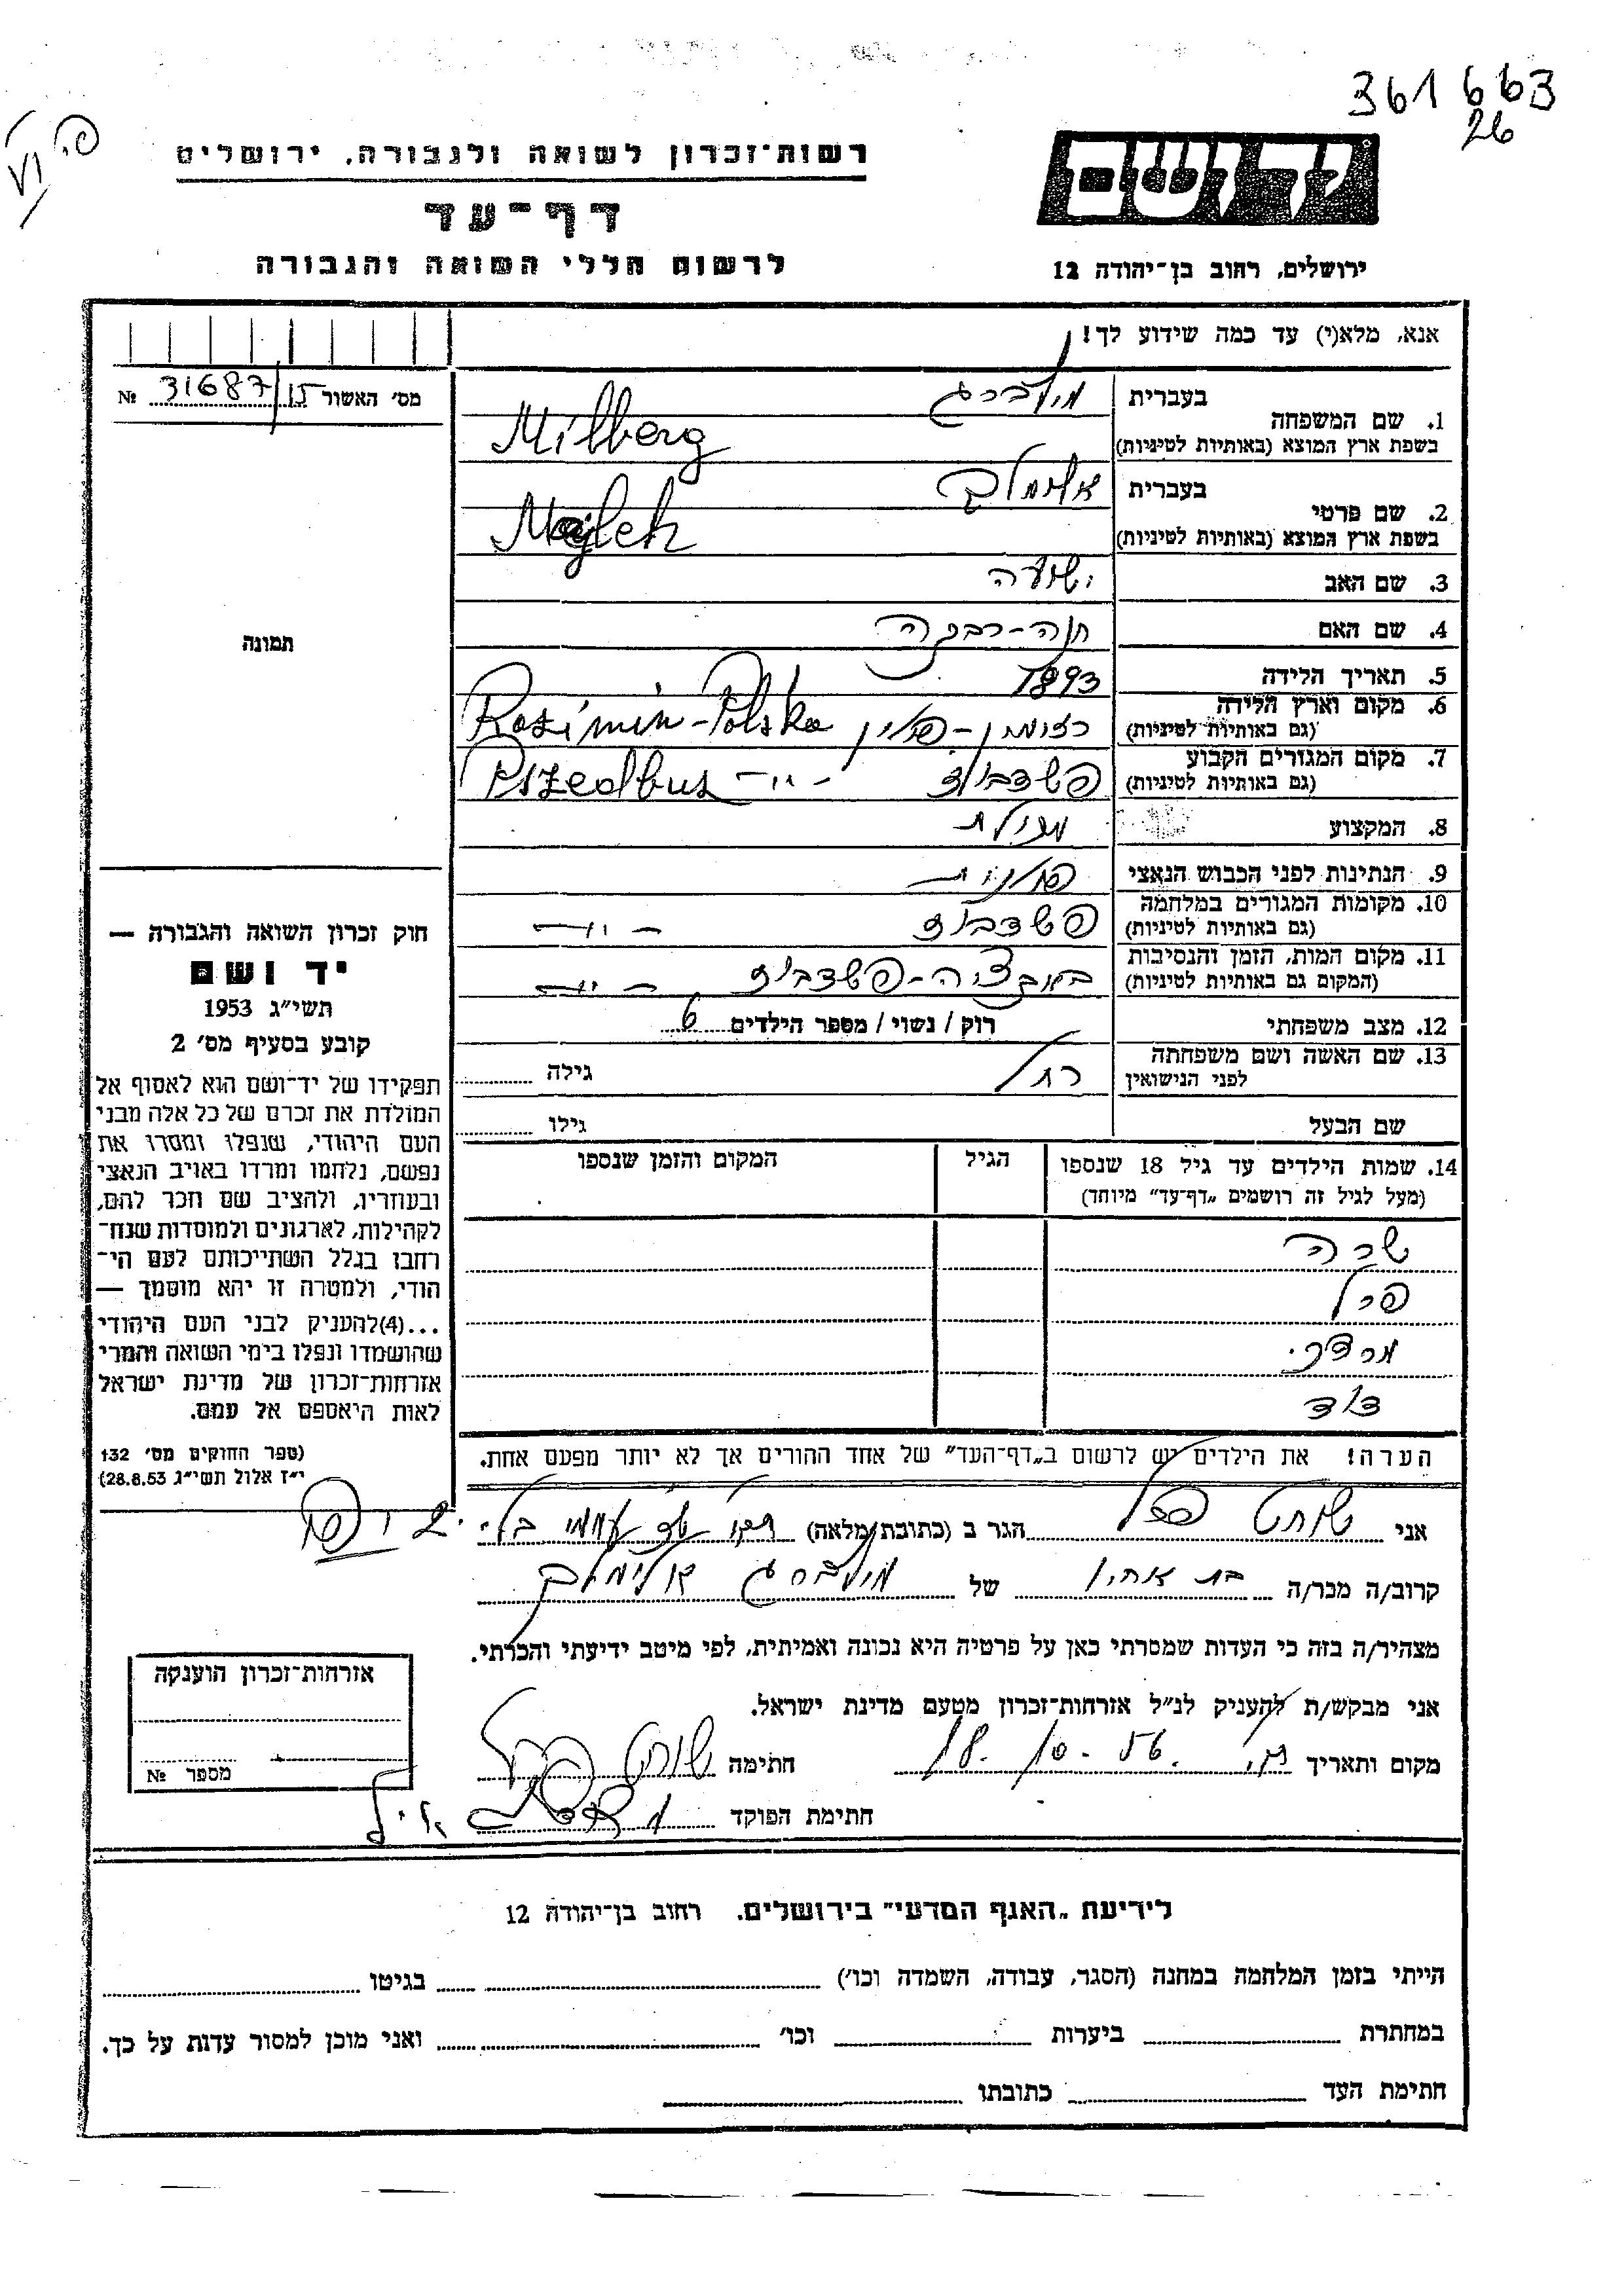 361 663
26
רשות־זכרון לשואה ולגבורה. ירושלים
ידושם
דף־עד
לרשום חללי השואה והגבורה
ירושלים, רחוב בן־יהודה 12
אנא, מלא(י) עד כמה שידוע לך!
מס׳ האשור 31687/15 №
1. שם המשפחה
בעברית מילברג
בשפת ארץ המוצא (באותיות לטיניות) Milberg
2. שם פרטי
בעברית אלימלך
בשפת ארץ המוצא (באותיות לטיניות)
3. שם האב ישעיה
4. שם האם חנה-רבקה
5. תאריך הלידה 1893
6. מקום וארץ הלידה
(גם באותיות לטיניות) רזומין-פולין Rozimin-Polska
7. מקום המגורים הקבוע
(גם באותיות לטיניות) פשדבוז Pszedbuz -״-
8. המקצוע
9. הנתינות לפני הכבוש הנאצי פולנית
10. מקומות המגורים במלחמה
(גם באותיות לטיניות) פשדבוז -״-
11. מקום המות, הזמן והנסיבות
(המקום גם באותיות לטיניות) באקציה-פשדבוז -״-
12. מצב משפחתי רוק / נשוי / מספר הילדים 6
13. שם האשה ושם משפחתה
לפני הנישואין רחל גילה
שם הבעל גילו
14. שמות הילדים עד גיל 18 שנספו
(מעל לגיל זה רושמים „דף־עד״ מיוחד)
הגיל
המקום והזמן שנספו
שרה
פרל
מרדכי
דוד
הערה! את הילדים יש לרשום ב„דף־העד״ של אחד ההורים אך לא יותר מפעם אחת.
תמונה
חוק זכרון השואה והגבורה —
יד ושם
תשי״ג 1953
קובע בסעיף מס׳ 2
תפקידו של יד־ושם הוא לאסוף אל
המולדת את זכרם של כל אלה מבני
העם היהודי, שנפלו ומסרו את
נפשם, נלחמו ומרדו באויב הנאצי
ובעוזריו, ולהציב שם וזכר להם,
לקהילות, לארגונים ולמוסדות שנח־
רבו בגלל השתייכותם לעם הי־
הודי, ולמטרה זו יהא מוסמך —
...(4)להעניק לבני העם היהודי
שהושמדו ונפלו בימי השואה והמרי
אזרחות־זכרון של מדינת ישראל
לאות היאספם אל עמם.
(ספר החוקים מס׳ 132
י״ז אלול תשי״ג 28.8.53)
אני שוחט פרל הגר ב (כתובת מלאה)
קרוב/ה מכר/ה בת אחיו של מילברג אלימלך
מצהיר/ה בזה כי העדות שמסרתי כאן על פרטיה היא נכונה ואמיתית, לפי מיטב ידיעתי והכרתי.
אני מבקש/ת להעניק לנ״ל אזרחות־זכרון מטעם מדינת ישראל.
מקום ותאריך 18.10.56 חתימה שוחט פרל
חתימת הפוקד
אזרחות־זכרון הוענקה
מספר №
לידיעת „האגף המדעי״ בירושלים. רחוב בן־יהודה 12
הייתי בזמן המלחמה במחנה (הסגר, עבודה, השמדה וכו׳) בגיטו
במחתרת ביערות וכו׳ ואני מוכן למסור עדות על כך.
חתימת העד כתובתו